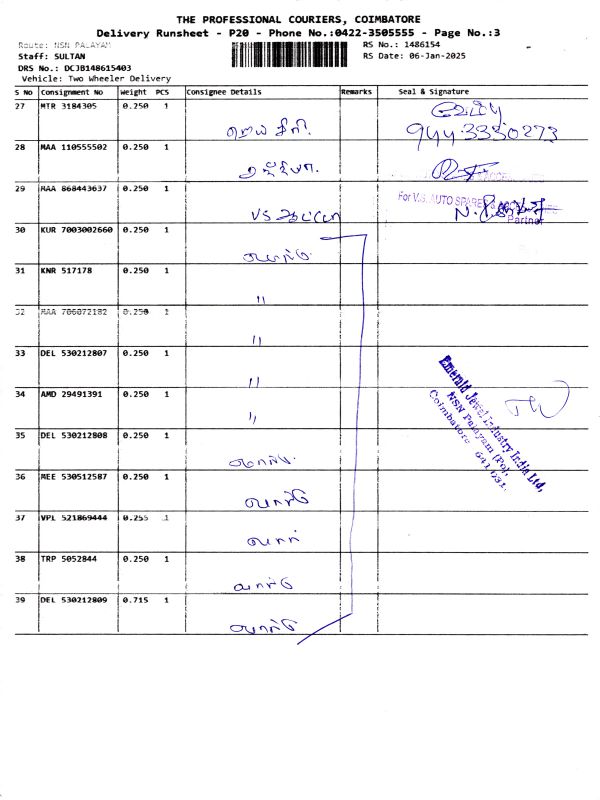 THE PROFESSIONAL COURIERS, COIMBATORE
Delivery Runsheet - P20 - Phone No.:0422-3505555 - Page No.:3
Route: NSN PALAYAM
RS No.: 1486154
Staff: SULTAN
RS Date: 06-Jan-2025
DRS No.: DCJB148615403
Vehicle: Two Wheeler Delivery
S No Consignment No Weight PCS Consignee Details Remarks Seal & Signature
27 MTR 3184305 0.250 1
944 3330273
28 MAA 110555502 0.250 1
29 MAA 868443637 0.250 1 VS ஆட்டோ
For V.S. AUTO SPARES &
Partner
30 KUR 7003002660 0.250 1
31 KNR 517178 0.250 1 "
32 MAA 706072182 0.250 1 "
33 DEL 530212807 0.250 1 "
34 AMD 29491391 0.250 1 "
Emerald Jewel Industry India Ltd,
NSN Palayam (Po),
Coimbatore 641 031.
35 DEL 530212808 0.250 1
36 MEE 530512587 0.250 1
37 VPL 521869444 0.255 1
38 TRP 5052844 0.250 1
39 DEL 530212809 0.715 1